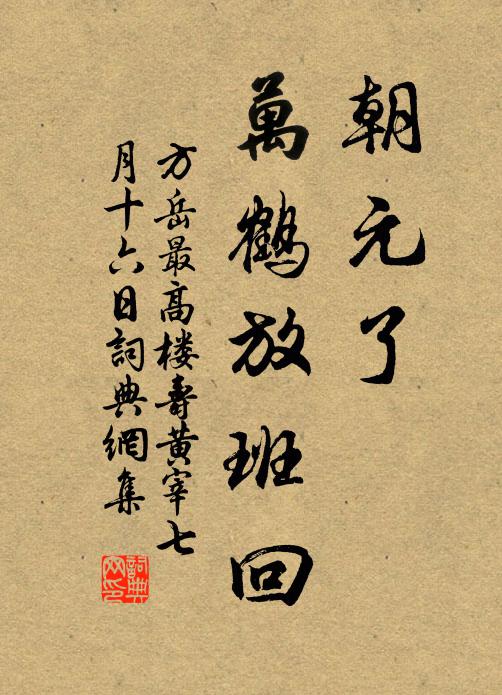 朝元了
萬鶴放班回
方岳最高楼壽黄宰七
月十六日詞典網集
詞典
网印